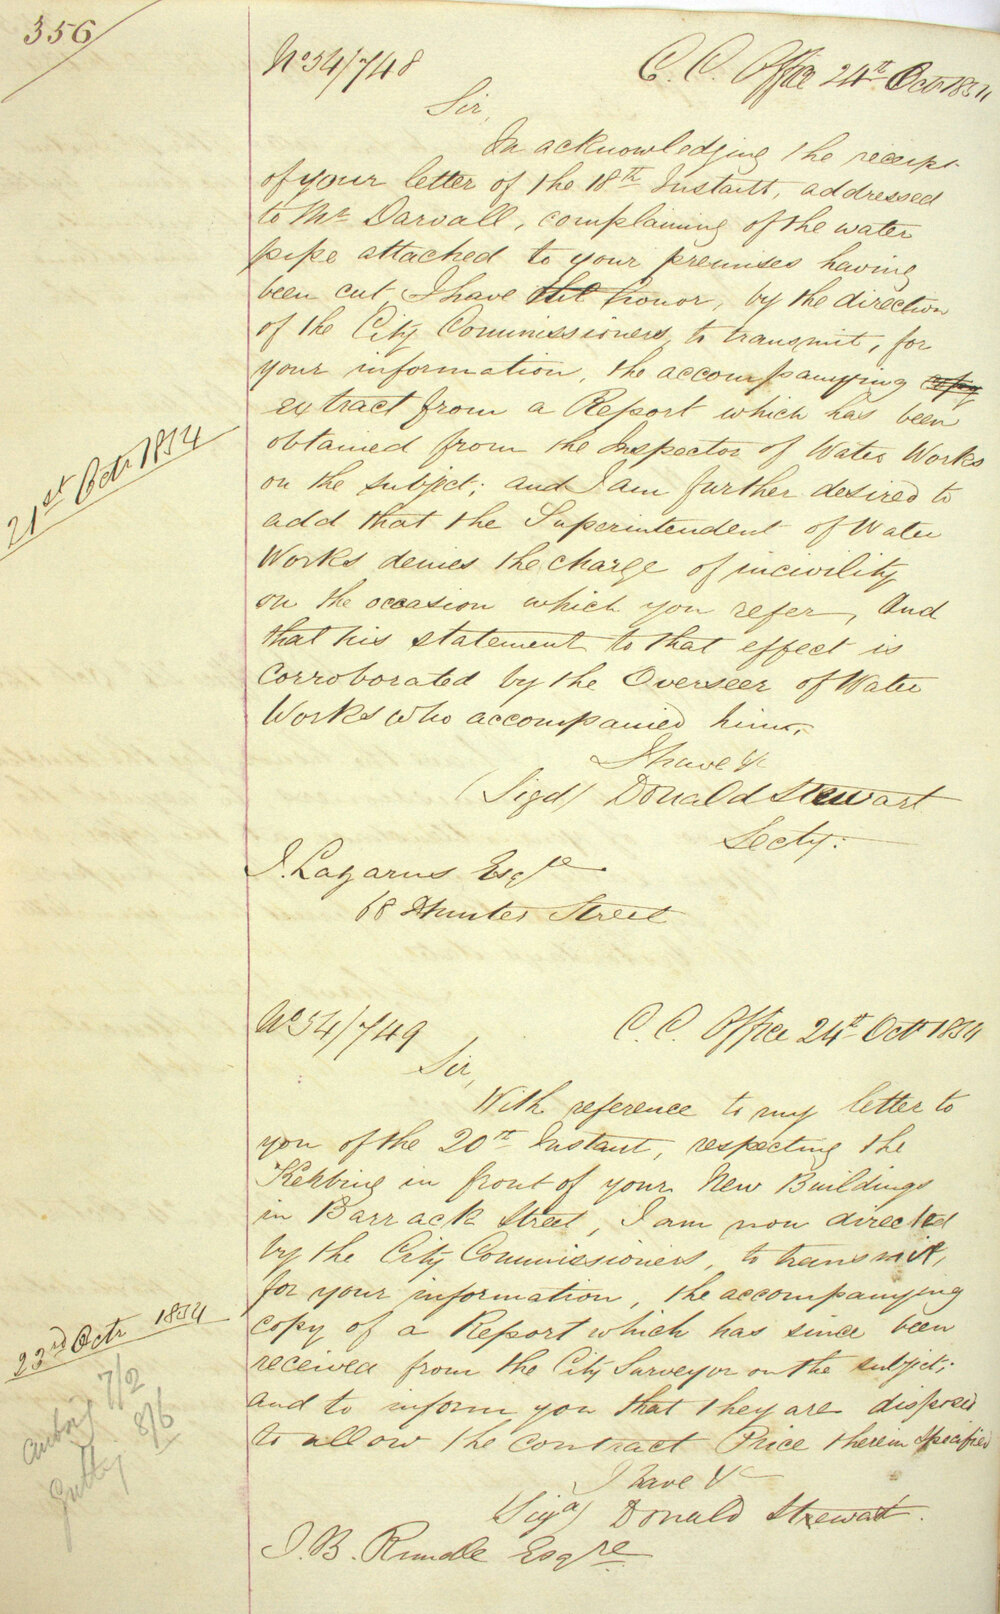 356
No 54/748
C. C. Office 24th Oct 1854
Sir,
In acknowledging the receipt
of your letter of the 18th Instant, addressed
to Mr Darvall, complaining of the water
pipe attached to your premises having
been cut, I have the honor, by the direction
of the City Commissioners, to transmit, for
your information, the accompanying copy
extract from a Report which has been
obtained from the Inspector of Water Works
21st Octr 1854
on the subject; and I am further desired to
add that the Superintendent of Water
Works denies the charge of incivility
on the occasion which you refer, And
that his statement to that effect is
corroborated by the Overseer of Water
Works who accompanied him.
I have &c
(Sigd) Donald Stewart
Secty.
J. Lazarus Esqre
68 Hunter Street
No 54/749
C. C. Office 24th Oct 1854
Sir,
With reference to my letter to
you of the 20th Instant, respecting the
Kerbing in front of your New Buildings
in Barrack Street, I am now directed
by the City Commissioners, to transmit,
for your information, the accompanying
copy of a Report which has since been
23rd Octr 1854
received from the City Surveyor on the subject;
and to inform you that they are disposed
to allow the contract Price therein specified
7/2
8/6
I have &c
(Sigd) Donald Stewart.
J. B. Rundle Esqre